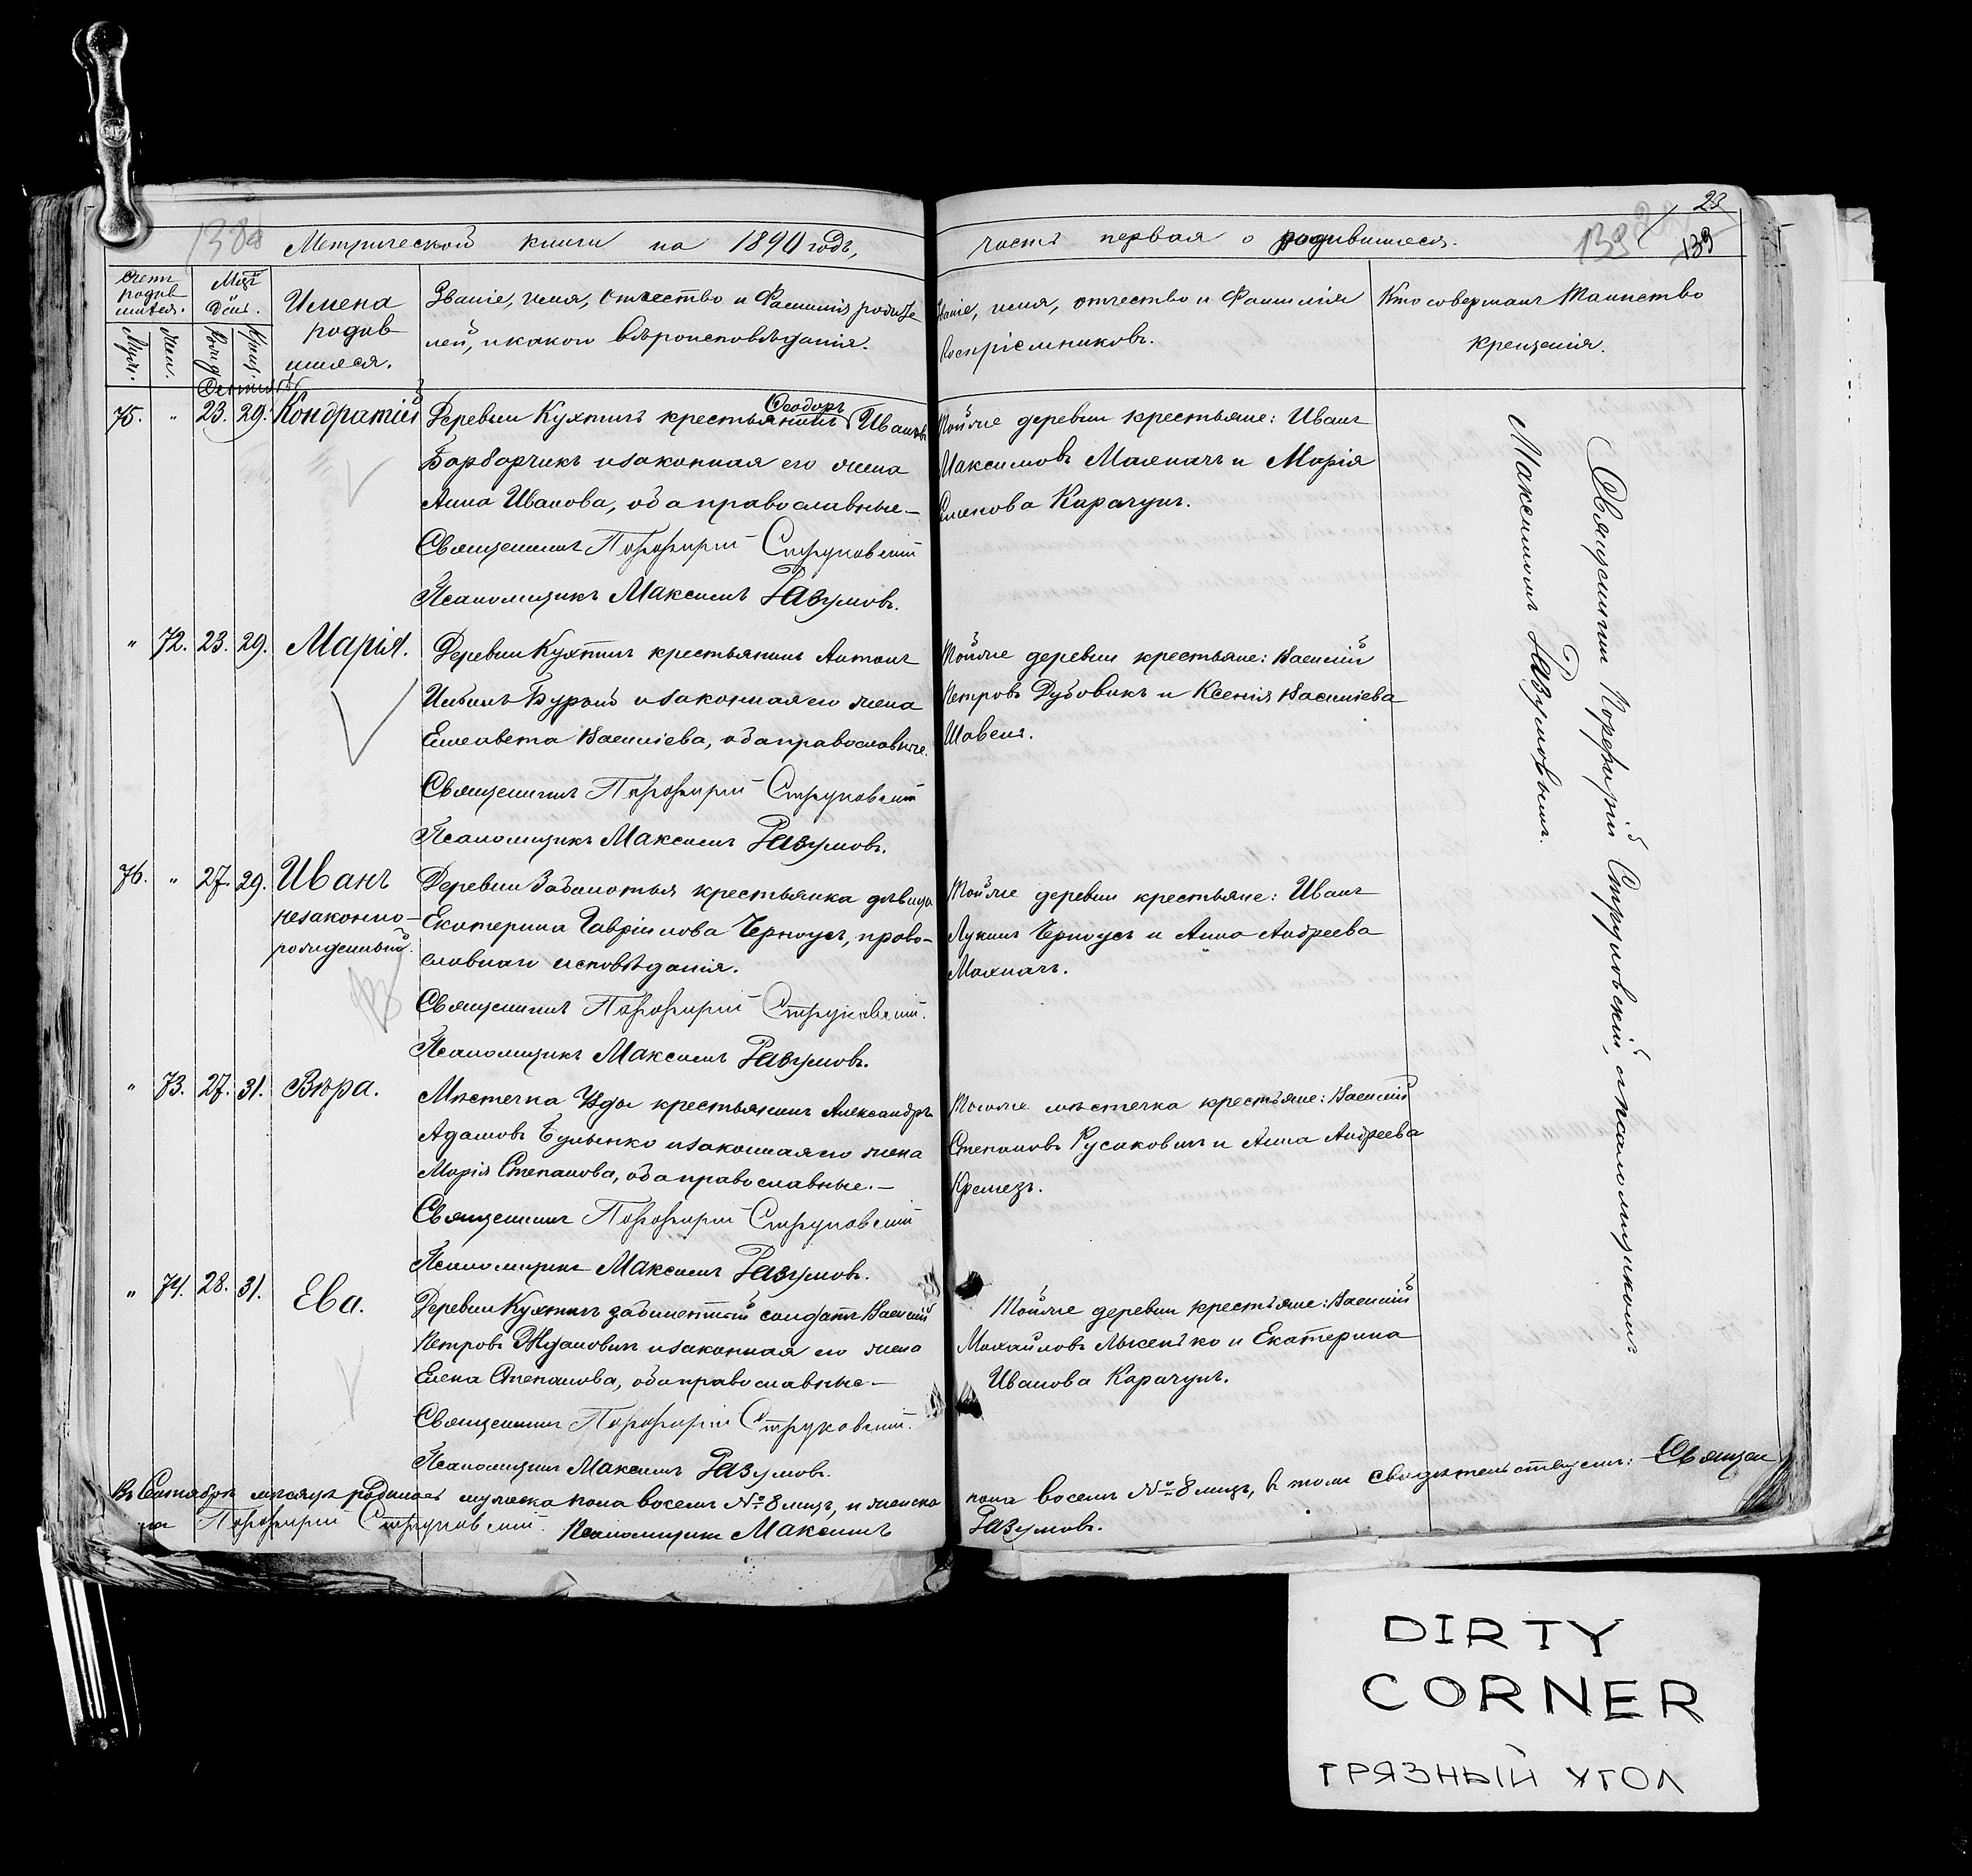 138
Метрической книги на 1890 годъ,
Счетъ родившихся.
Муж.
Жен.
Мцъ и День.
Рожд.
Крещ.
Имена родив
шихся.
Званіе, имя, отчество и Фамилія родите
лей, и какого вѣроисповѣданія.
75. " 23. 29. Кондратій
Деревни Кухтичъ крестьянинъ Ѳеодоръ Ивановъ
Барборчикъ и законная его жена
Анна Иванова, оба православные.—
Священникъ Порфирій Струковскій
Псаломщикъ Максимъ Разумовъ.
" 72. 23. 29. Марія.
Деревни Кухтичъ крестьянинъ Антонъ
Бурый и законная его жена
Елисавета Василіева, оба православные.
Священникъ Порфирій Струковскій
Псаломщикъ Максимъ Разумовъ.
76. " 27. 29. Иванъ
незаконно-
рожденный.
Деревни Заболотья крестьянка дѣвица
Екатерина Гавріилова Черноусъ, право-
славнаго исповѣданія.
Священникъ Порфирій Струковскій.
Псаломщикъ Максимъ Разумовъ.
" 73. 27. 31. Вѣра.
Мѣстечка Узды крестьянинъ Александръ
Адамовъ Булынко и законная его жена
Марія Степанова, оба православные.—
Священникъ Порфирій Струковскій
Псаломщикъ Максимъ Разумовъ.
" 74. 28. 31. Ева.
Деревни Кухтичъ солдатъ Василій
Петровъ Ждановичъ и законная его жена
Елена Степанова, оба православные—
Священникъ Порфирій Струковскій.
Псаломщикъ Максимъ Разумовъ.
Въ мѣсяцѣ родилось мужеска пола восемь № 8 лицъ, и женска
Порфирій Струковскій. Псаломщикъ Максимъ
23
139
139
часть первая о родившихся.
Званіе, имя, отчество и Фамилія
Воспріемниковъ.
Кто совершалъ Таинство
Крещенія.
Тойже деревни крестьяне: Иванъ
Максимовъ Махначъ и Марія
Семенова Карачунъ.
Тойже деревни крестьяне: Василій
Петровъ Дубовикъ и Ксенія Василіева
Шавеля.
Тойже деревни крестьяне: Иванъ
Лукинъ Черноусъ и Анна Андреева
Махначъ.
Тогоже мѣстечка крестьяне: Василій
Степановъ Русаковичъ и Анна Андреева
Кремезъ.
Тойже деревни крестьяне: Василій
Михайловъ Лысенько и Екатерина
Иванова Карачунъ.
Священникъ Порфирій Струковскій, съ псаломщикомъ
Максимомъ Разумовымъ.
пола восемь № 8 лицъ, въ томъ свидѣтельствуемъ: Священ
Разумовъ.
DIRTY
CORNER
ГРЯЗНЫЙ УГОЛ